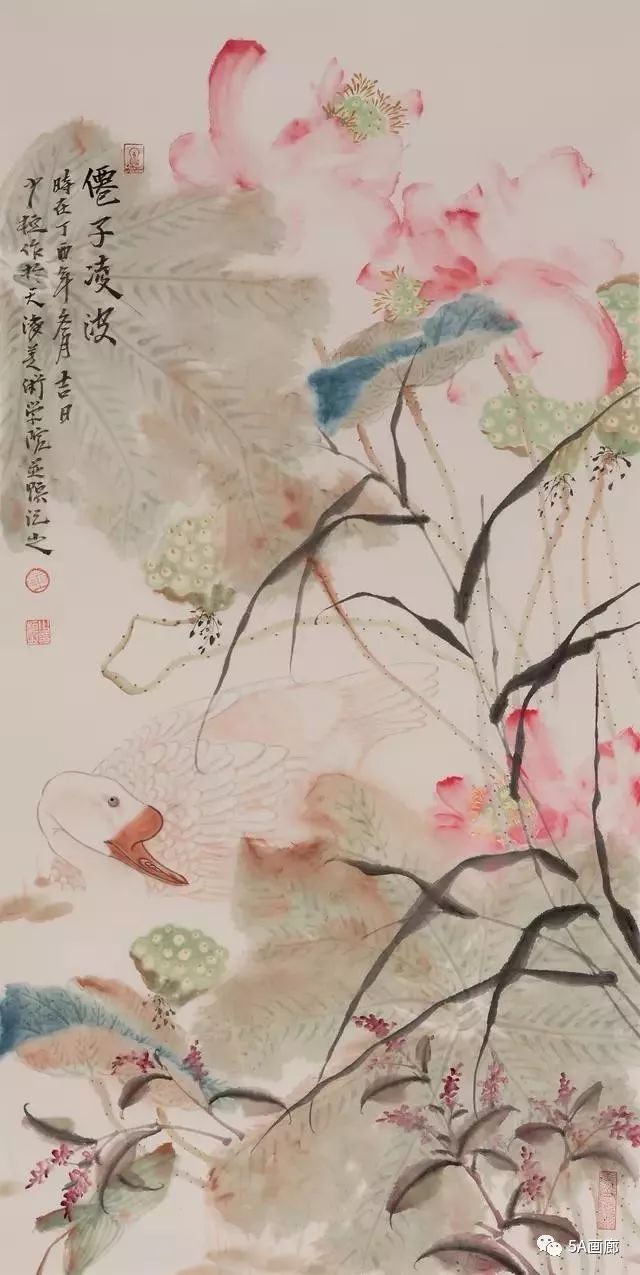 僊子凌波
時在丁酉年月吉日
作於天津美術学院並題记之
5A画廊